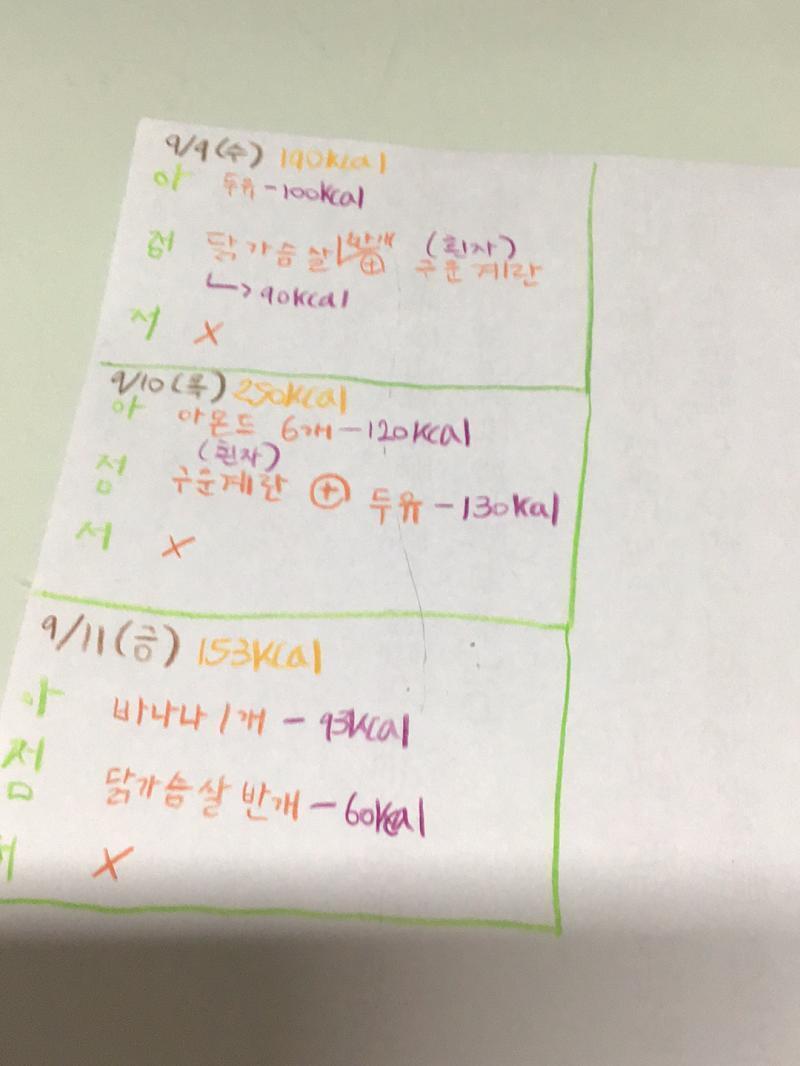 9/9(수) 190kcal
아 두유-100kcal
점 닭가슴살 반개 ⊕ (흰자) 구운계란
↳90kcal
저 X
9/10(목) 250kcal
아 아몬드 6개-120kcal
(흰자)
점 구운계란 ⊕ 두유-130Kal
저 X
9/11(금) 153kcal
아 바나나 1개 - 93kcal
점 닭가슴살 반개-60kcal
저 X